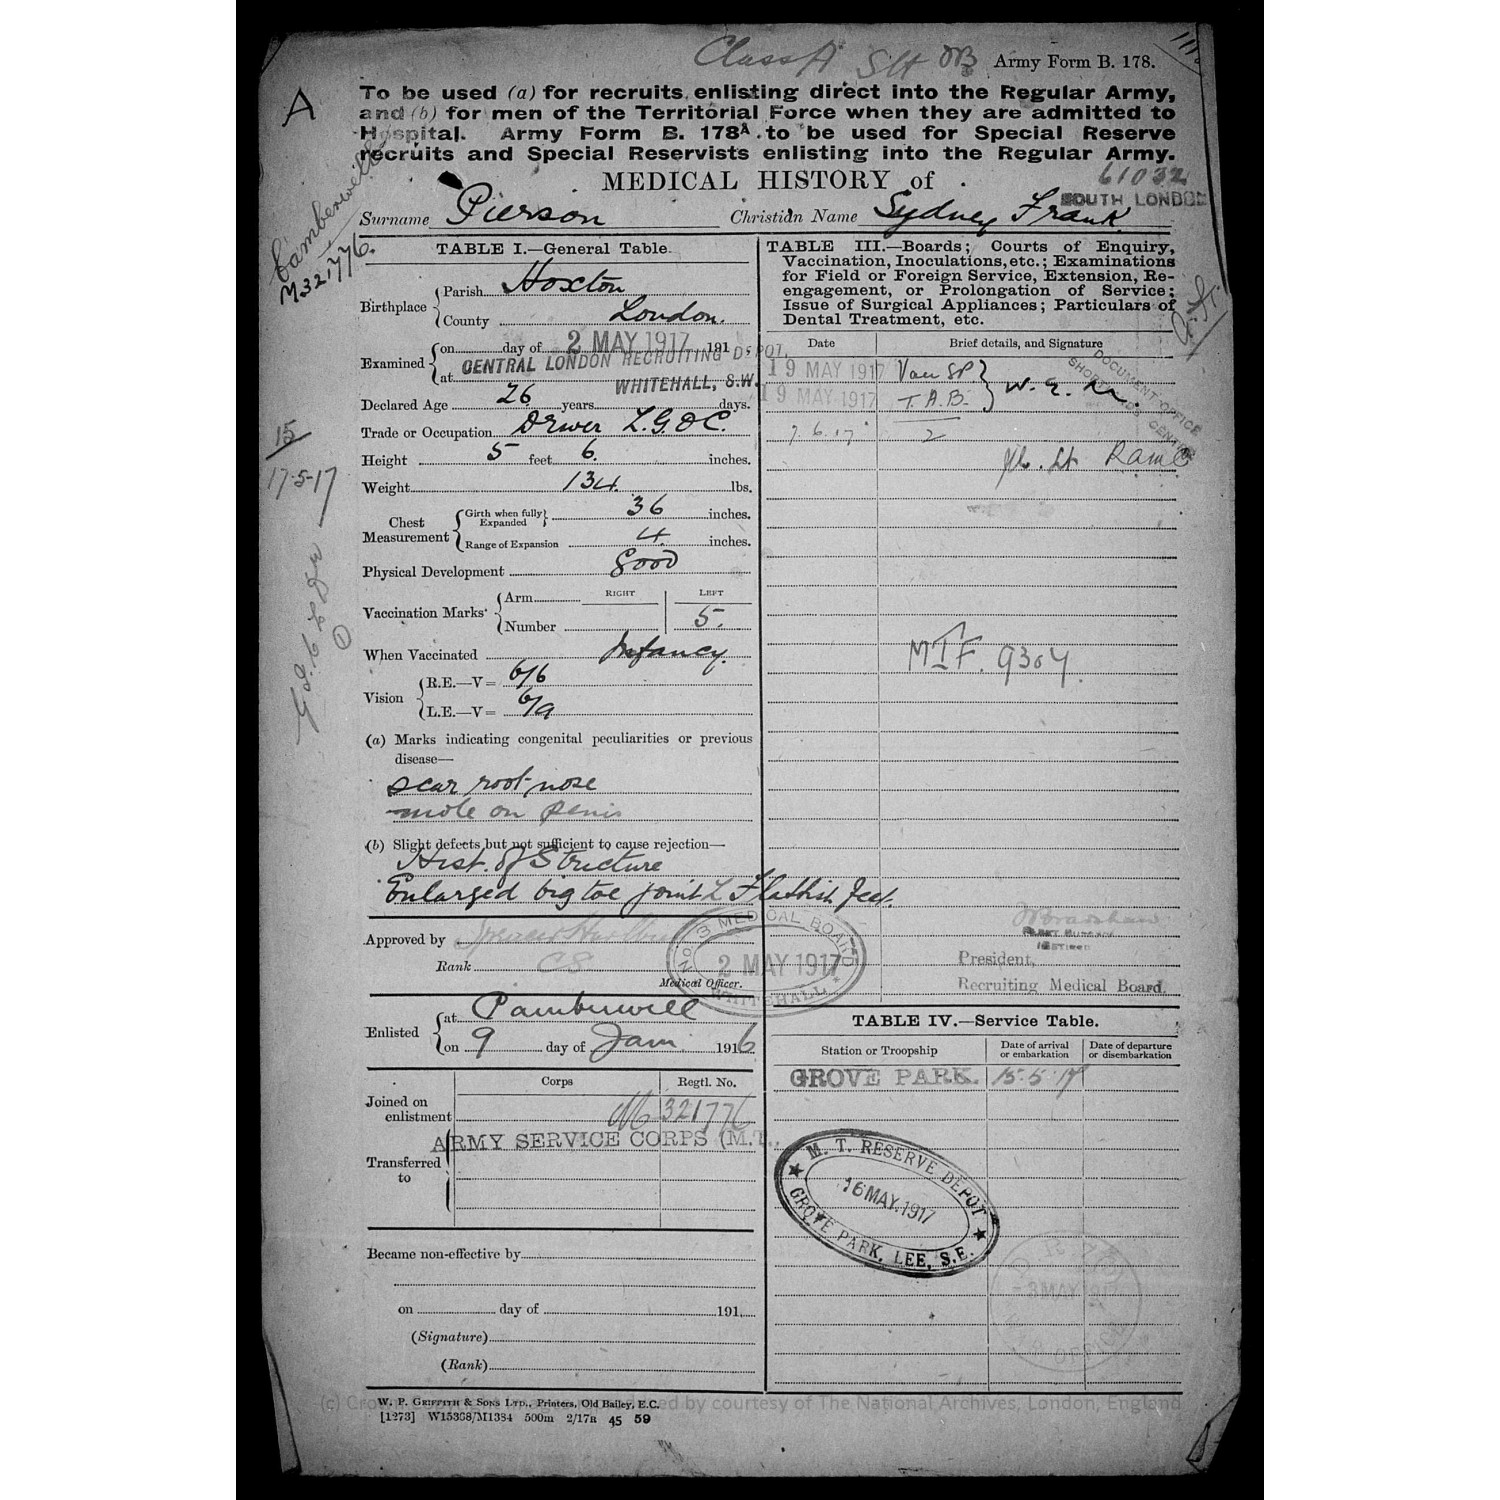 Class A
Army Form B. 178.
A
To be used (a) for recruits enlisting direct into the Regular Army,
and (b) for men of the Territorial Force when they are admitted to
Hospital. Army Form B. 178A to be used for Special Reserve
recruits and Special Reservists enlisting into the Regular Army.
MEDICAL HISTORY of
61032
SOUTH LONDON
Surname Pierson Christian Name Sydney Frank
Camberwell
M321776.
TABLE I.—General Table.
Birthplace Parish Hoxton
County London.
Examined on day of 2 MAY 1917 191
at CENTRAL LONDON RECRUITING DEPOT,
WHITEHALL, S.W.
Declared Age 26 years days.
Trade or Occupation Driver L.G.O.C.
Height 5 feet 6. inches.
Weight 134. lbs.
Chest Measurement Girth when fully Expanded 36 inches.
Range of Expansion 4. inches.
Physical Development Good
Vaccination Marks Arm RIGHT LEFT
Number 5.
When Vaccinated Infancy.
Vision R.E.—V= 6/6
L.E.—V= 6/9
(a) Marks indicating congenital peculiarities or previous
disease—
scar root nose
mole on penis
(b) Slight defects but not sufficient to cause rejection—
Hist. of Stricture
Enlarged big toe joint L Flattish feet.
Approved by
Rank
Medical Officer.
No. 3 MEDICAL BOARD
2 MAY 1917
WHITEHALL
Enlisted at Camberwell
on 9 day of Jan 1916
Corps Regtl. No.
Joined on
enlistment M 321776
ARMY SERVICE CORPS (M.T.
Transferred
to
Became non-effective by
on day of 191
(Signature)
(Rank)
15
17-5-17
TABLE III.—Boards; Courts of Enquiry,
Vaccination, Inoculations, etc.; Examinations
for Field or Foreign Service, Extension, Re-
engagement, or Prolongation of Service;
Issue of Surgical Appliances; Particulars of
Dental Treatment, etc.
Date Brief details, and Signature
19 MAY 1917
19 MAY 1917 T.A.B.
7.6.17 2
DOCUMENT OFFICE
CENTRE
Lt RAMC
MTF. 9304
President,
Recruiting Medical Board.
TABLE IV.—Service Table.
Station or Troopship Date of arrival or embarkation Date of departure or disembarkation
GROVE PARK. 15.5.17
M. T. RESERVE DEPOT
16 MAY. 1917
GROVE PARK, LEE, S.E.
W. P. GRIFFITH & SONS LTD., Printers, Old Bailey, E.C.
[1273] W15368/M1334 500m 2/17R 45 59
by courtesy of The National Archives, London, England